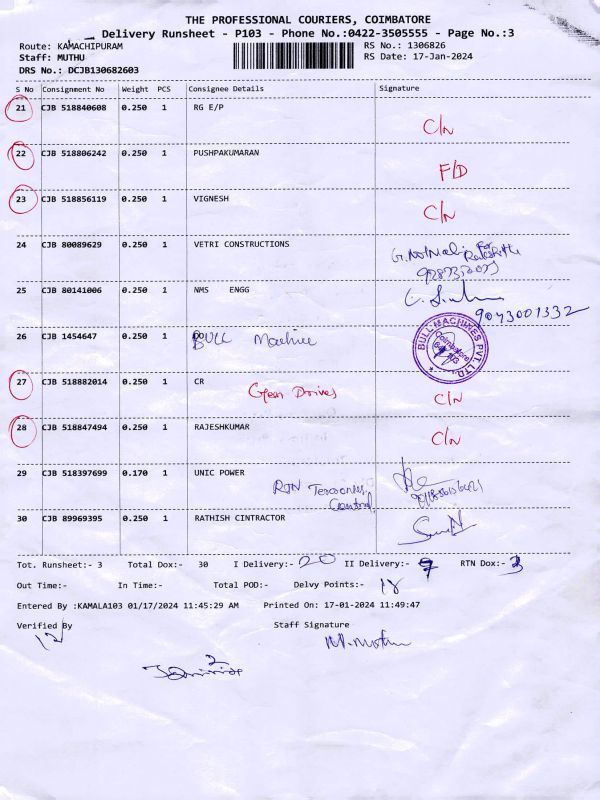 THE PROFESSIONAL COURIERS, COIMBATORE
Delivery Runsheet - P103 - Phone No.:0422-3505555 - Page No.:3
Route: KAMACHIPURAM RS No.: 1306826
Staff: MUTHU RS Date: 17-Jan-2024
DRS No.: DCJB130682603
S No Consignment No Weight PCS Consignee Details Signature
21 CJB 518840608 0.250 1 RG E/P C/N
22 CJB 518806242 0.250 1 PUSHPAKUMARAN F/D
23 CJB 518856119 0.250 1 VIGNESH C/N
24 CJB 80089629 0.250 1 VETRI CONSTRUCTIONS
25 CJB 80141006 0.250 1 NMS ENGG 9043001332
26 CJB 1454647 0.250 1 BULL Machine BULL MACHINES PVT. LTD. Coimbatore
27 CJB 518882014 0.250 1 CR Gear Drives C/N
28 CJB 518847494 0.250 1 RAJESHKUMAR C/N
29 CJB 518397699 0.170 1 UNIC POWER
30 CJB 89969395 0.250 1 RATHISH CINTRACTOR
Tot. Runsheet:- 3 Total Dox:- 30 I Delivery:- 20 II Delivery:- 7 RTN Dox:- 3
Out Time:- In Time:- Total POD:- Delvy Points:- 18
Entered By :KAMALA103 01/17/2024 11:45:29 AM Printed On: 17-01-2024 11:49:47
Verified By Staff Signature
12 M.Muthu
2